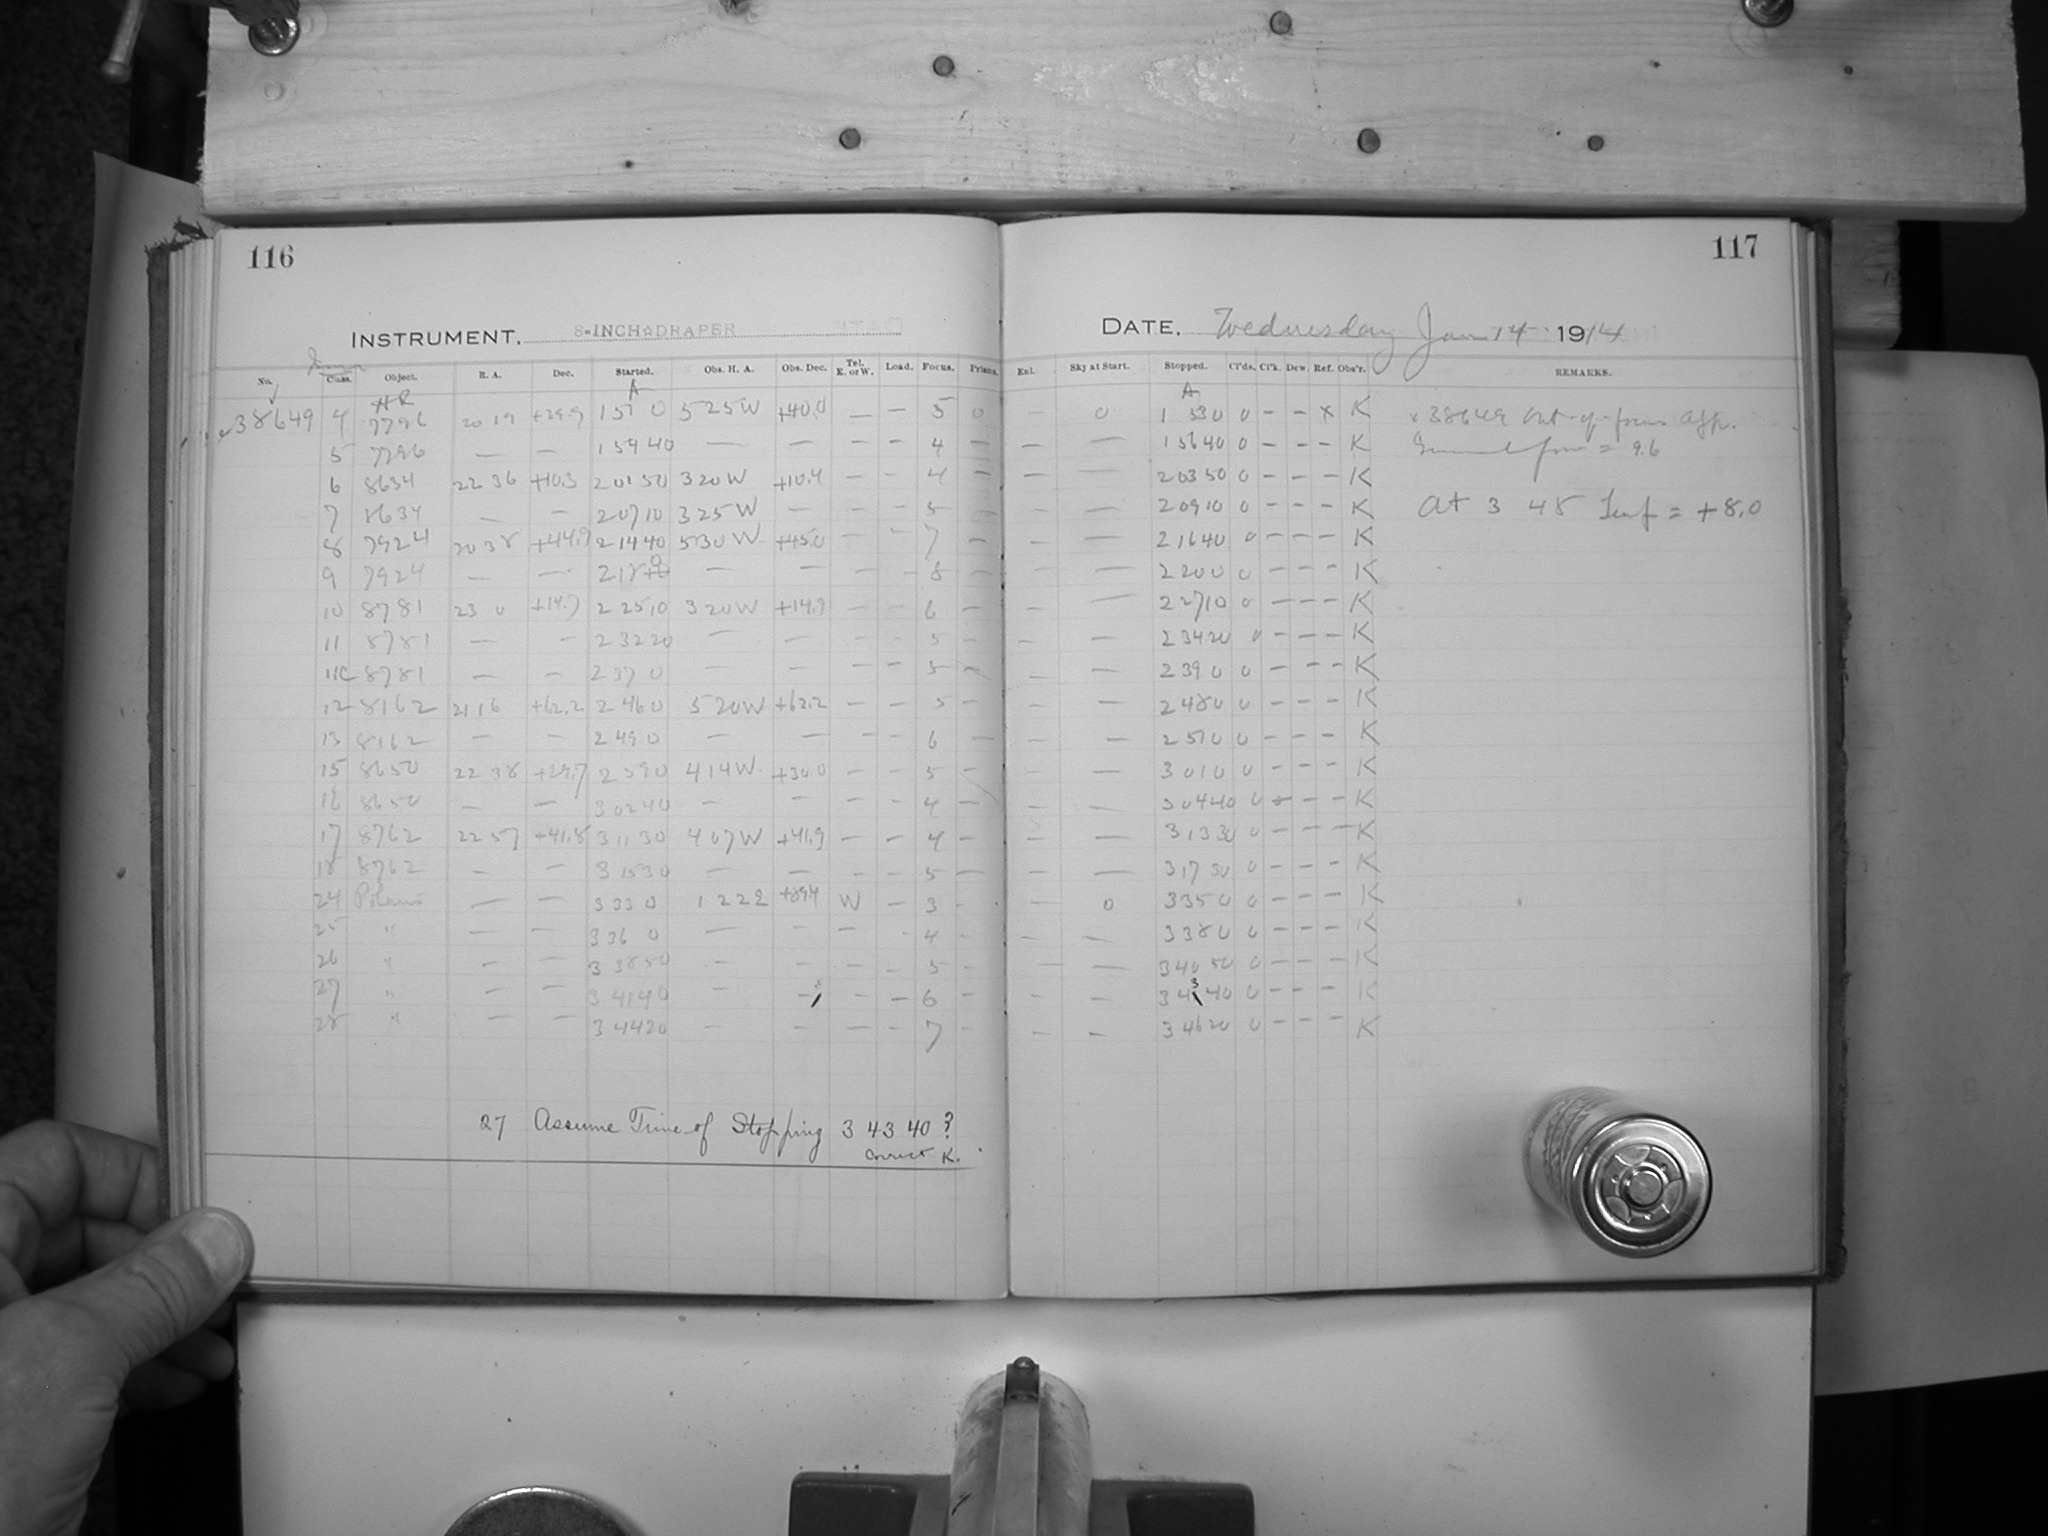 116
117
INSTRUMENT. 8-INCH DRAPER
DATE. Wednesday Jan 14 1914
No. Class. Object. R. A. Dec. Started. Obs. H. A. Obs. Dec. Tel. E. or W. Load. Focus. Prism. Enl. Sky at Start. Stopped. Cl'ds. Cl'k. Dew. Ref. Obs'r. REMARKS.
HR A A
38649 4 7796 20 19 +39.9 1 51 0 525W +40.0 — – 5 0 — 0 1 53 0 0 – – x K x 38649 Out-of-focus
5 7796 — — 1 54 40 — — — – 4 – — — 1 56 40 0 – – – K = 9.6
6 8634 22 36 +10.3 2 01 50 320W +10.4 — – 4 – — — 2 03 50 0 – – – K
7 8634 — — 2 07 10 325W — — – 5 – — — 2 09 10 0 – – – K At 3 45 = +8.0
8 7924 20 38 +44.9 2 14 40 530W +45.0 – – 7 – — — 2 16 40 0 – – – K
9 7924 — — 2 18 0 — — — – 8 – — — 2 20 0 0 – – – K
10 8781 23 0 +14.7 2 25 10 320W +14.9 – – 6 – – — 2 27 10 0 – – – K
11 8781 — – 2 32 20 — — – – 5 – — — 2 34 20 0 – – – K
11C 8781 — – 2 37 0 — — – – 5 – – — 2 39 0 0 – – – K
12 8162 21 16 +62.2 2 46 0 520W +62.2 – – 5 – – — 2 48 0 0 – – – K
13 8162 – – 2 49 0 — — – – 6 – – — 2 51 0 0 – – – K
15 8650 22 38 +29.7 2 59 0 414W +30.0 – – 5 – – — 3 01 0 0 – – – K
16 8650 – — 3 02 40 – – – – 4 – – — 3 04 40 0 – – – K
17 8762 22 57 +41.8 3 11 30 407W +41.9 – – 4 – – — 3 13 30 0 – – – K
18 8762 – – 3 15 30 – — – – 5 – – — 3 17 30 0 – – – K
24 Polaris — — 3 33 0 1 22 2 +89.4 W – 3 – – 0 3 35 0 0 – – – K
25 " — — 3 36 0 — – – – 4 – – – 3 38 0 0 – – – K
26 " – – 3 38 50 – – – – 5 – – — 3 40 50 0 – – – K
27 " – – 3 41 40 – – – – 6 – – – 3 43 40 0 – – – K
28 " – – 3 44 20 – – – – 7 – – – 3 46 20 0 – – – K
27 Assume Time of Stopping 3 43 40 ?
Correct K.